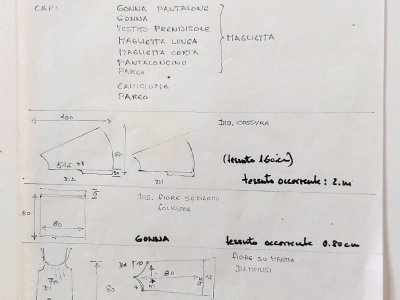 CAPI
GONNA PANTALONE
GONNA
VESTITO PRENDISOLE
MAGLIETTA LUNGA
MAGLIETTA CORTA
PANTALONCINO
PAREO
MAGLIETTA
CAMICIONE
PAREO
DIS. COSSYRA
200
(tessuto 160cm)
tessuto occorrente: 2.m
DIS. FIORE SCHIANTO
FOLKLORE
50
80
GONNA
tessuto occorrente 0.80cm
FIORE SU MARMO
DAMMUSI
70
80
80